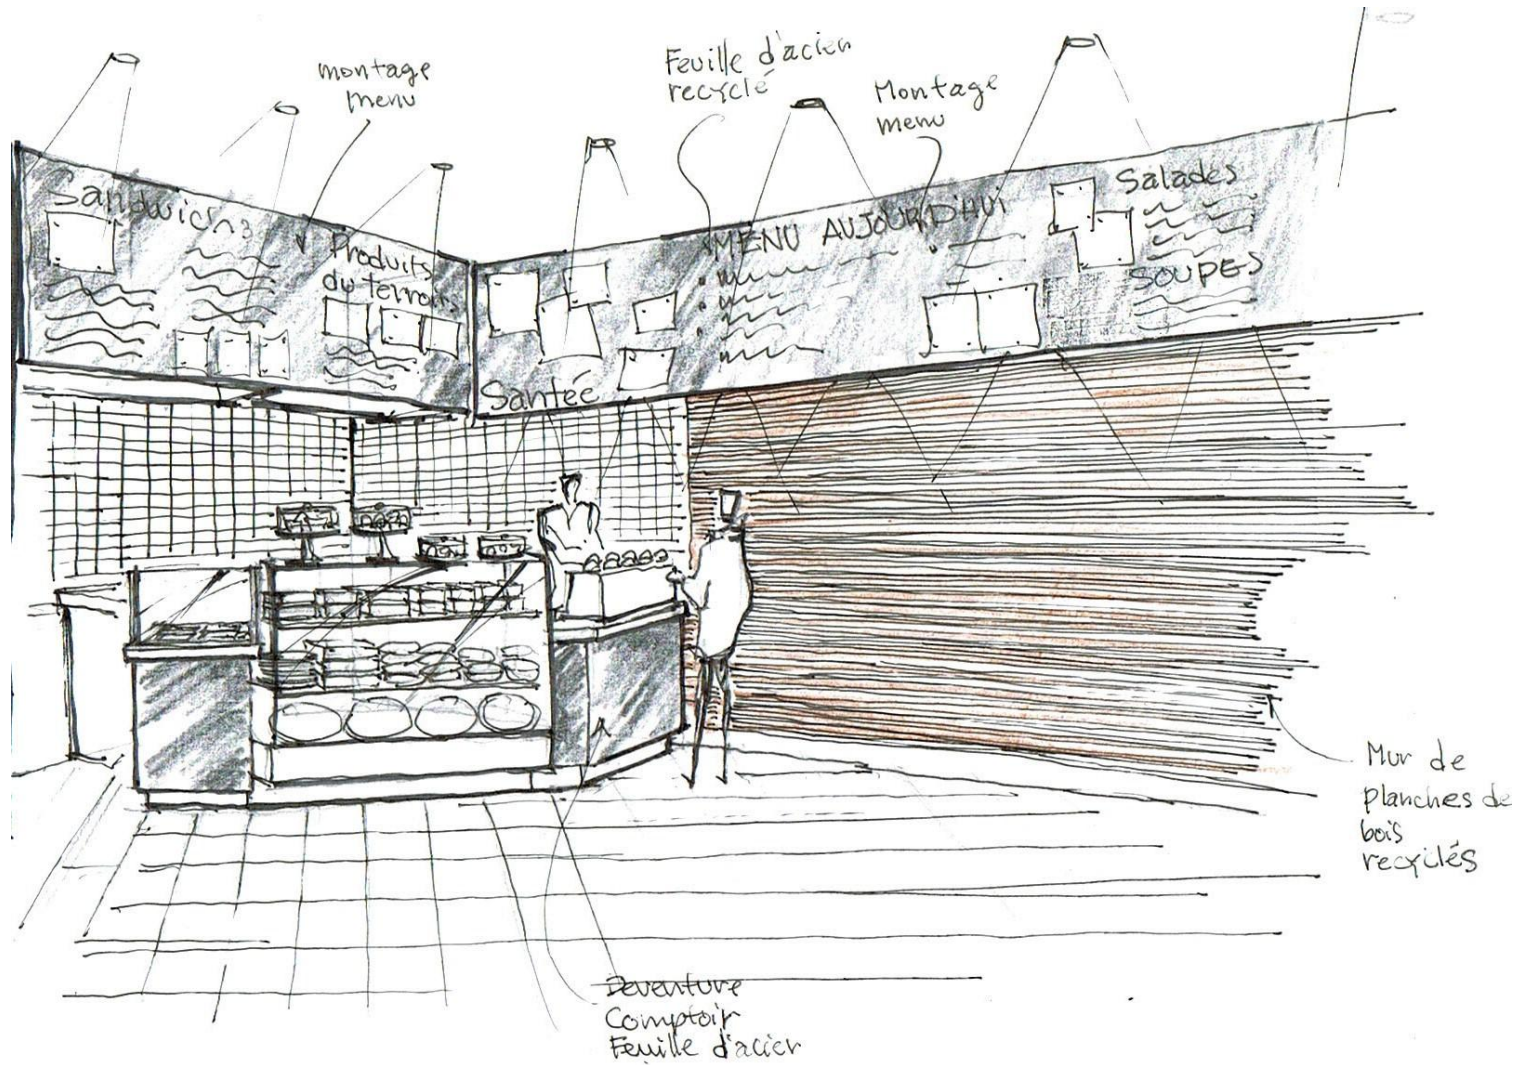 montage
menu
Feuille d'acier
recyclé
Montage
menu
Sandwichs
Produits
du terroir
Santée
MENU AUJOURD'HUI
Salades
SOUPES
Mur de
planches de
bois
recyclés
Deventure
Comptoir
Feuille d'acier